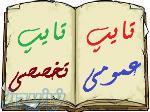 تایپ
عمومی
تایپ
تخصصی